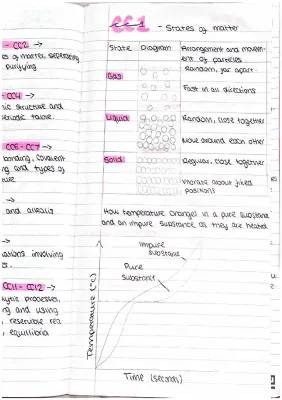 CC1 - States of matter
- CC2 →
es of matter, seperating
purifying
- CC4 →
ic structure and
periodic table.
CC5 - CC7 →
bonding, covalent
ng and types of
→
and alkalis
→
ations involving
CC11 - CC12 →
lytic processes,
ng and using
, reversible rea
, equilibria
State Diagram Arrangement and movem-
ent of particles
Gas Random, far apart.
Fast in all directions
Liquid Random, close together
Move around each other
Solid Regular, close together
Vibrate about fixed
positions
How temperature changes in a pure substance
and an impure substance as they are heated
Impure
substance
Pure
substance
Temperature (°C)
Time (seconds)